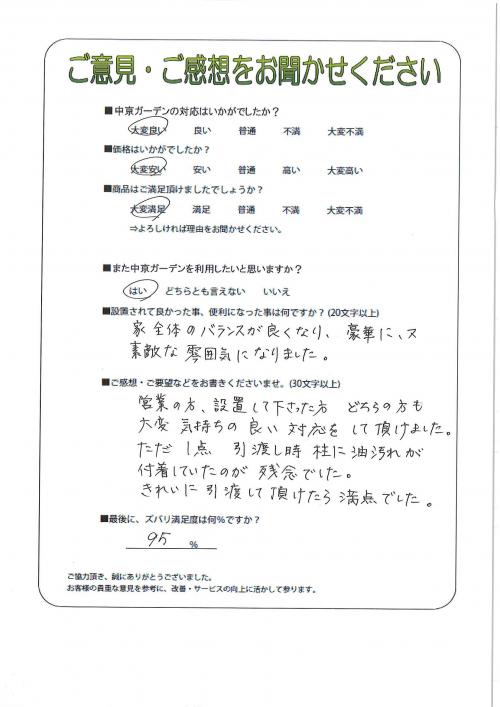 ご意見・ご感想をお聞かせください
■中京ガーデンの対応はいかがでしたか？
大変良い 良い 普通 不満 大変不満
■価格はいかがでしたか？
大変安い 安い 普通 高い 大変高い
■商品はご満足頂けましたでしょうか？
大変満足 満足 普通 不満 大変不満
⇒よろしければ理由をお聞かせください。
■また中京ガーデンを利用したいと思いますか？
はい どちらとも言えない いいえ
■設置されて良かった事、便利になった事は何ですか？(20文字以上)
家全体のバランスが良くなり、豪華に、又
素敵な雰囲気になりました。
■ご感想・ご要望などをお書きくださいませ。(30文字以上)
営業の方、設置して下さった方 どちらの方も
大変 気持ちの良い 対応を して頂けました。
ただ 1点 引渡し時 柱に油汚れが
付着していたのが 残念でした。
きれいに 引渡して頂けたら 満点でした。
■最後に、ズバリ満足度は何%ですか？
95 %
ご協力頂き、誠にありがとうございました。
お客様の貴重な意見を参考に、改善・サービスの向上に活かして参ります。